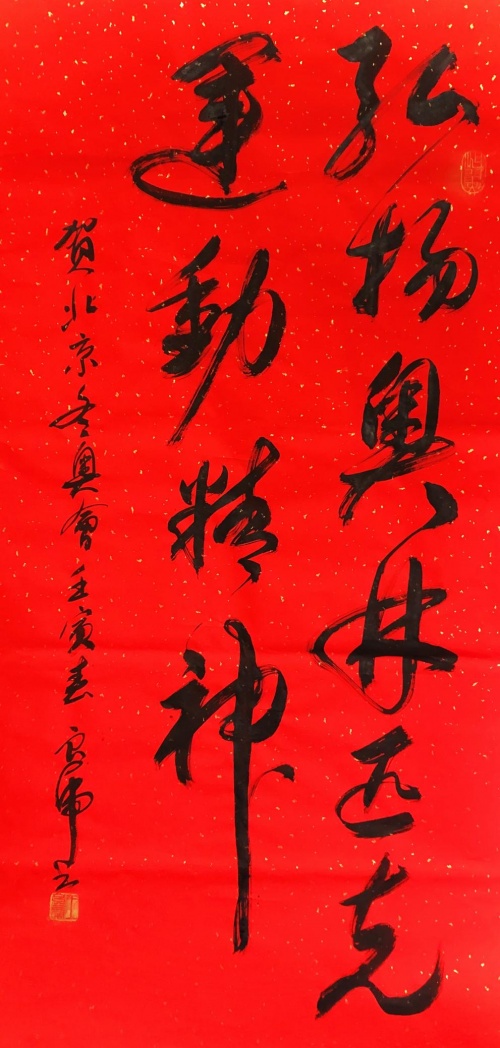 弘扬奥林匹克
運動精神
贺北京冬奥會壬寅春